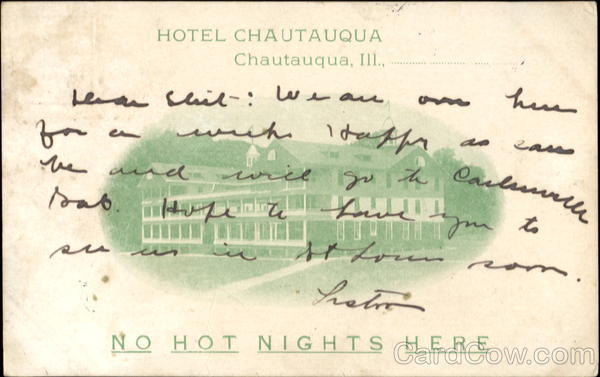 HOTEL CHAUTAUQUA
Chautauqua, Ill.,
Dear : We are over here
for a week Happy as can
be and will go to Carlinville
Sat. Hope to have you to
see us in St Louis soon.
NO HOT NIGHTS HERE
CardCow.com